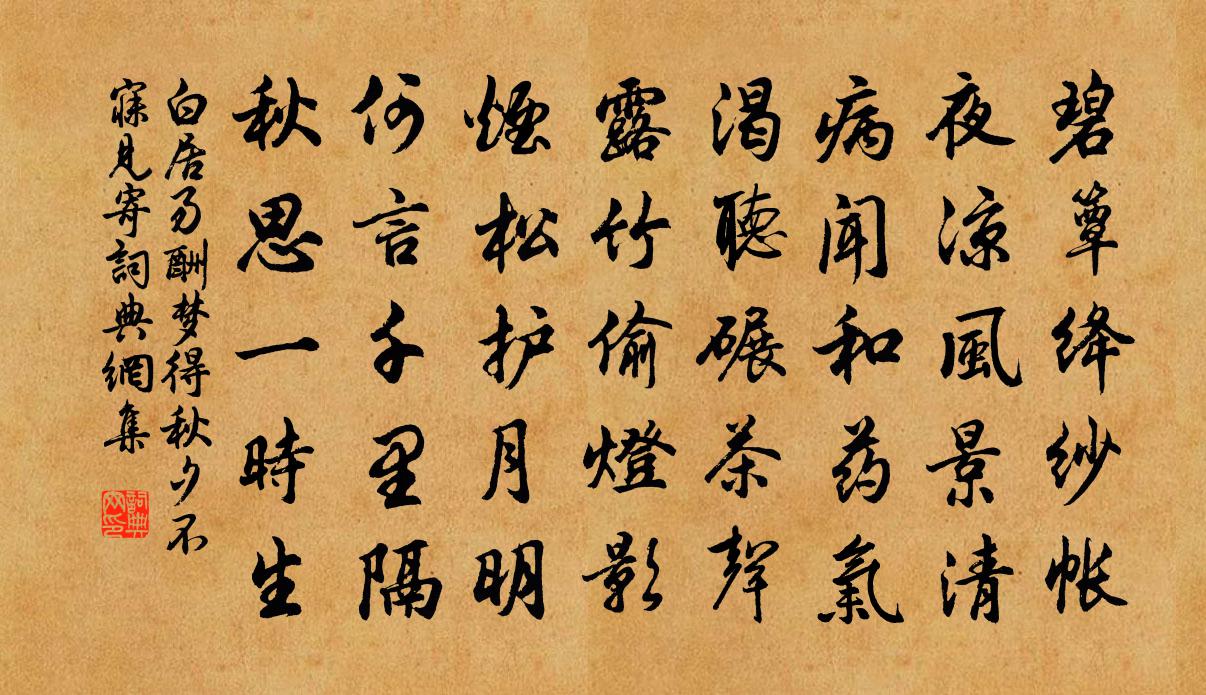 碧簟绛纱帐
夜凉風景清
病闻和药氣
渴聽碾茶聲
露竹偷燈影
煙松护月明
何言千里隔
秋思一時生
白居易酬梦得秋夕不
寐見寄詞典網集
詞典网印